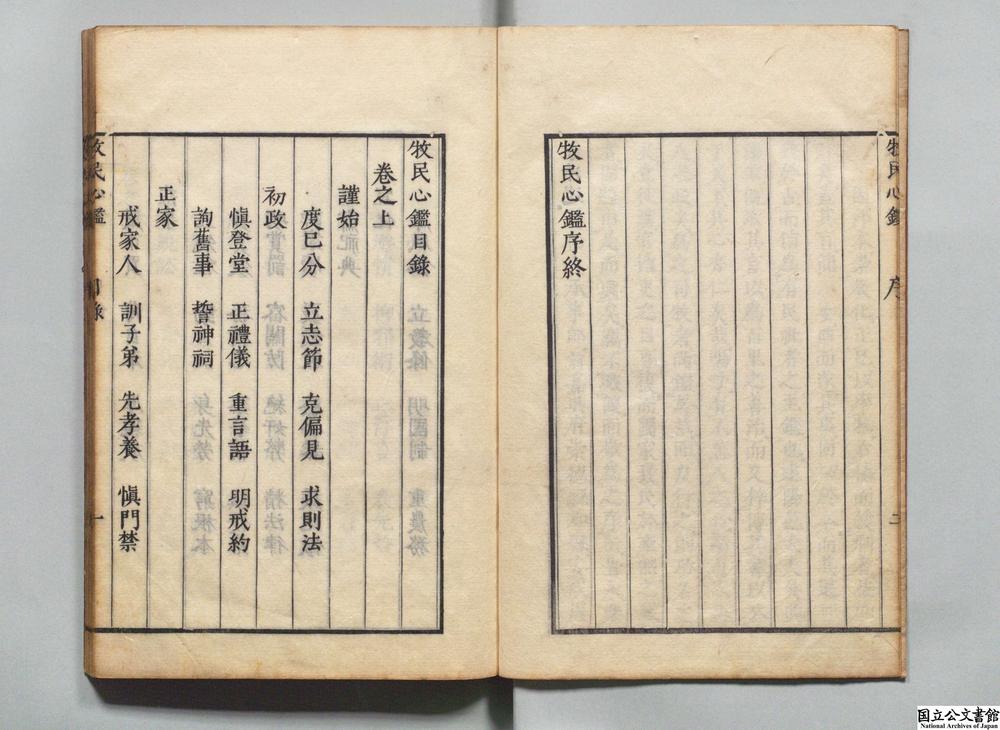 牧民心鑑 序 二
牧民心鑑序終
牧民心鑑目錄
卷之上
謹始
度己分 立志節 克偏見 求則法
初政
愼登堂 正禮儀 重言語 明戒約
詢舊事 誓神祠
正家
戒家人 訓子弟 先孝養 愼門禁
牧民心鑑 目錄 一
国立公文書館
National Archives of Japan